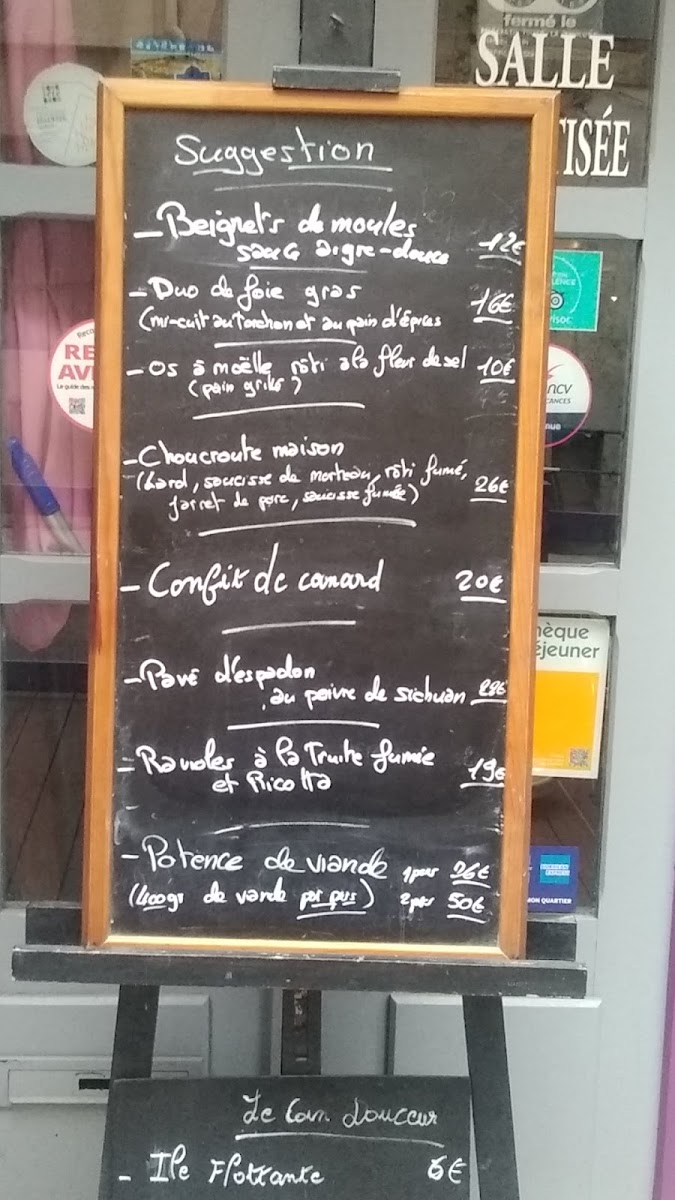 fermé le
SALLE
TISÉE
Suggestion
- Beignets de moules
sauce aigre-douce 12€
- Duo de foie gras 16€
(mi-cuit au Torchon et au pain d'épices
- Os à moëlle rôti à la fleur de sel 10€
(pain grillé)
- Choucroute maison
(Lard, saucisse de morteau, rôti fumé, 26€
jarret de porc, saucisse fumée)
- Confit de canard 20€
- Pavé d'espadon
au poivre de sichuan
- Ravioles à la Truite fumée 19€
et Ricotta
- Potence de viande 1pers 26€
(400gr de viande par pers) 2pers 50€
Le Coin Douceur
- Ile Flottante 6€
RE
AVI
Le guide des
ncv
CANCES
hèque
éjeuner
AMERICAN
EXPRESS
MON QUARTIER